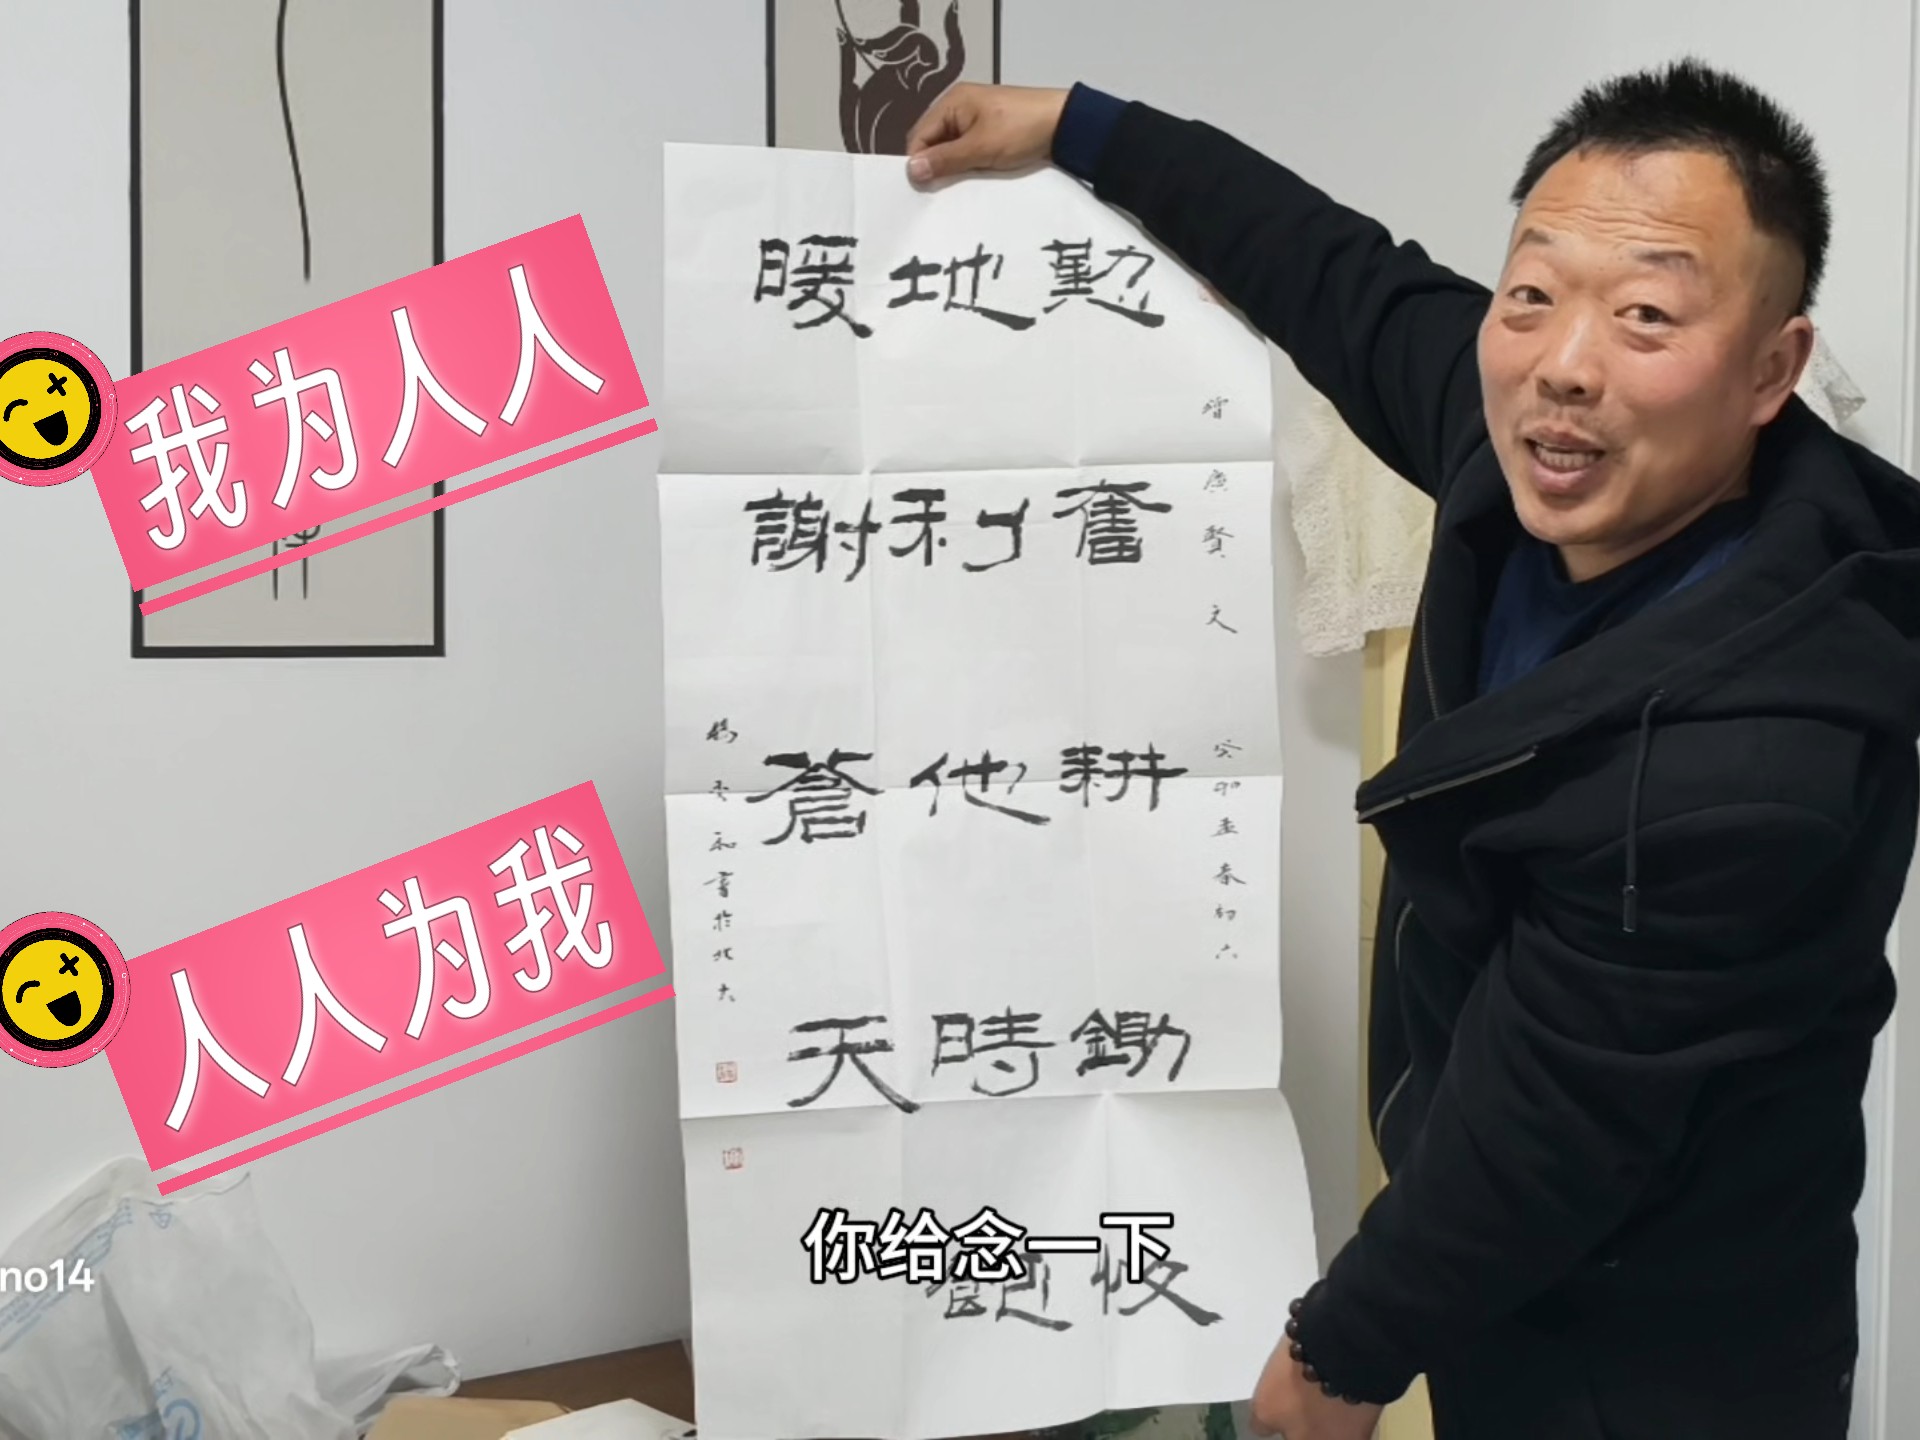 我为人人
人人为我
增廣賢文 癸卯孟春初六
勤奮耕鋤收
地利他時飽
暖謝蒼天
和書於北大
你给念一下
no14